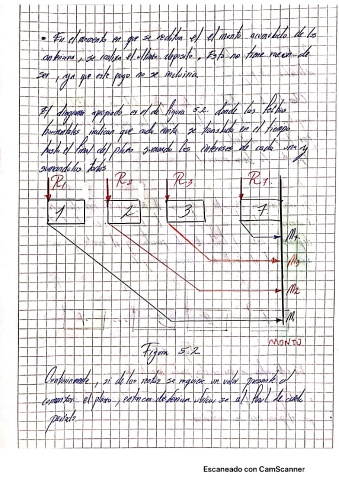 • En el momento en que se realiza el monto acumulado de los
se realiza el último depósito, Esto no tiene razón de
ser, ya que este pago no se incluiría.
El diagrama apropiado es el de figura 5.2. donde las flechas
horizontales indican que cada renta se traslada en el tiempo
hasta el final del plazo ganando los intereses de cada una y
sumandolos todos
R1 R2 R3 R7
1 2 3 7
M7
M3
M2
M1
MONTO
Figura 5.2
si de las rentas se requiere un valor presente al
comenzar el plazo, entonces al final de cada
periodo.
Escaneado con CamScanner